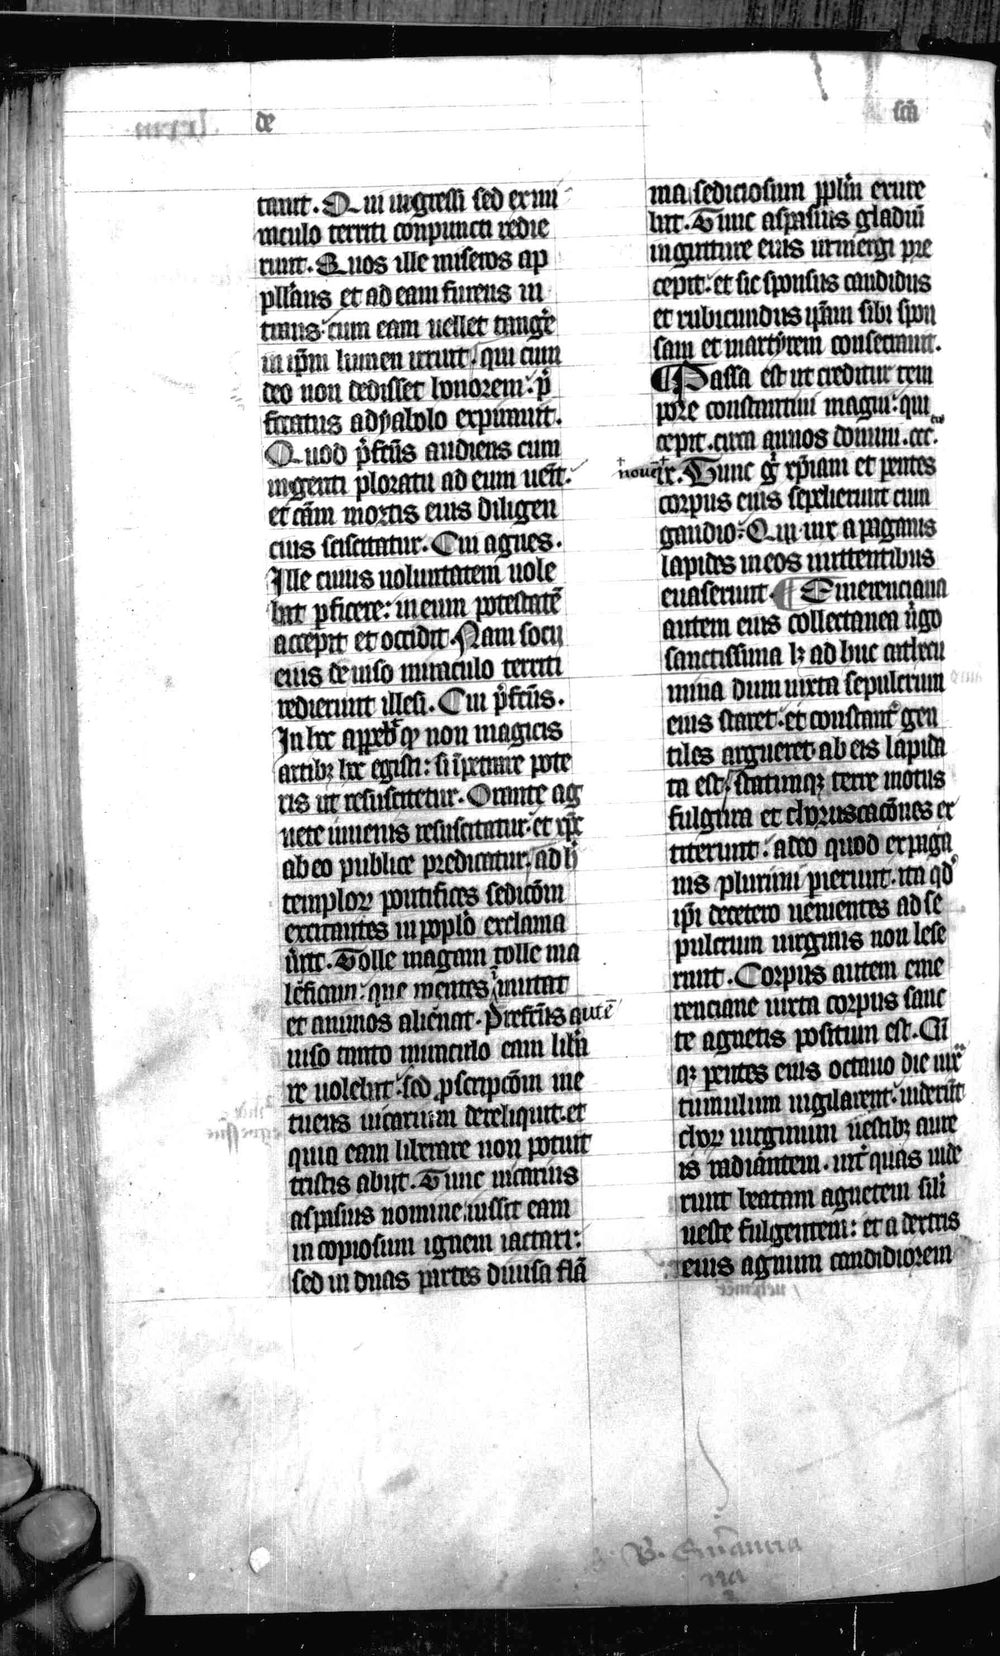 de
scā
tauit. Qui ingressi sed ex mi
raculo territi conpuncti redie
runt. Quos ille miseros ap
pellans et ad eam furens in
trans: cum eam uellet tang̃e
in ip̃m lumen irruit. qui cum
deo non dedisset honorem: p̃
focatus a dyabolo expirauit.
Quod p̃fctũs audiens cum
ingenti ploratu ad eum uẽit.
et cãm mortis eius diligen
cius sciscitatur. Cui agnes.
Ille cuius uoluntatem uole
bat ꝑficere: in eum potestatẽ
accepit et occidit. Nam socii
eius de uiso miraculo territi
redierunt illesi. Cui p̃fctũs.
In hoc apparebit ꝙ non magicis
artibꝫ hec egisti: si ĩpetrare pote
ris ut resuscitetur. Orante ag
nete iuuenis resuscitatur. et xp̃c
ab eo publice predicatur. ad h̃
templorꝝ pontifices sedicõm
excitantes in poplõ exclama
ũrt. Tolle magam tolle ma
leficam: que mentes inmutat
et animos alienat. Prefctũs autẽ
uiso tanto miraculo eam libã
re uolebat: sed ꝓscripcõm me
tuens uicarium dereliquit. et
quia eam liberare non potuit
tristis abijt. Tunc uicarius
aspasius nomine iussit eam
in copiosum ignem iactari:
sed in duas partes diuisa flã
ma sediciosum pplũm exure
bat. Tunc aspasius gladiũ
in gutture eius inmergi pre
cepit: et sic sponsus candidus
et rubicundus ip̃am sibi spon
sam et martyrem consecrauit.
¶ Passa est ut creditur tem
pore constantini magni: qui
cepit. circa annos domini. ccc.
nouẽ
ix. Tunc g̃ xp̃iani et pñtes
corpus eius sepelierunt cum
gaudio: Qui uix a paganis
lapides in eos mittentibus
euaserunt. ¶ Emerenciana
autem eius collectanea ũgo
sanctissima lꝫ adhuc cathecu
mina dum iuxta sepulcrum
eius staret. et constanter gen
tiles argueret. ab eis lapida
ta est. statimqꝫ terre motus
fulgura et choruscacões ex
titerunt: adeo quod ex paga
nis plurimi perierunt. ita qd̃
ip̃i decetero uenientes ad se
pulcrum uirginis non lese
runt. Corpus autem eme
renciane iuxta corpus sanc
te agnetis positum est. Cũ
qꝫ parentes eius octauo die iux
tumulum uigilarent. uiderũt
chorꝝ uirginum uestibꝫ aure
is radiantem. int̃ quas uide
runt beatam agnetem sili
ueste fulgentem: et a dextris
eius agnum candidiorem